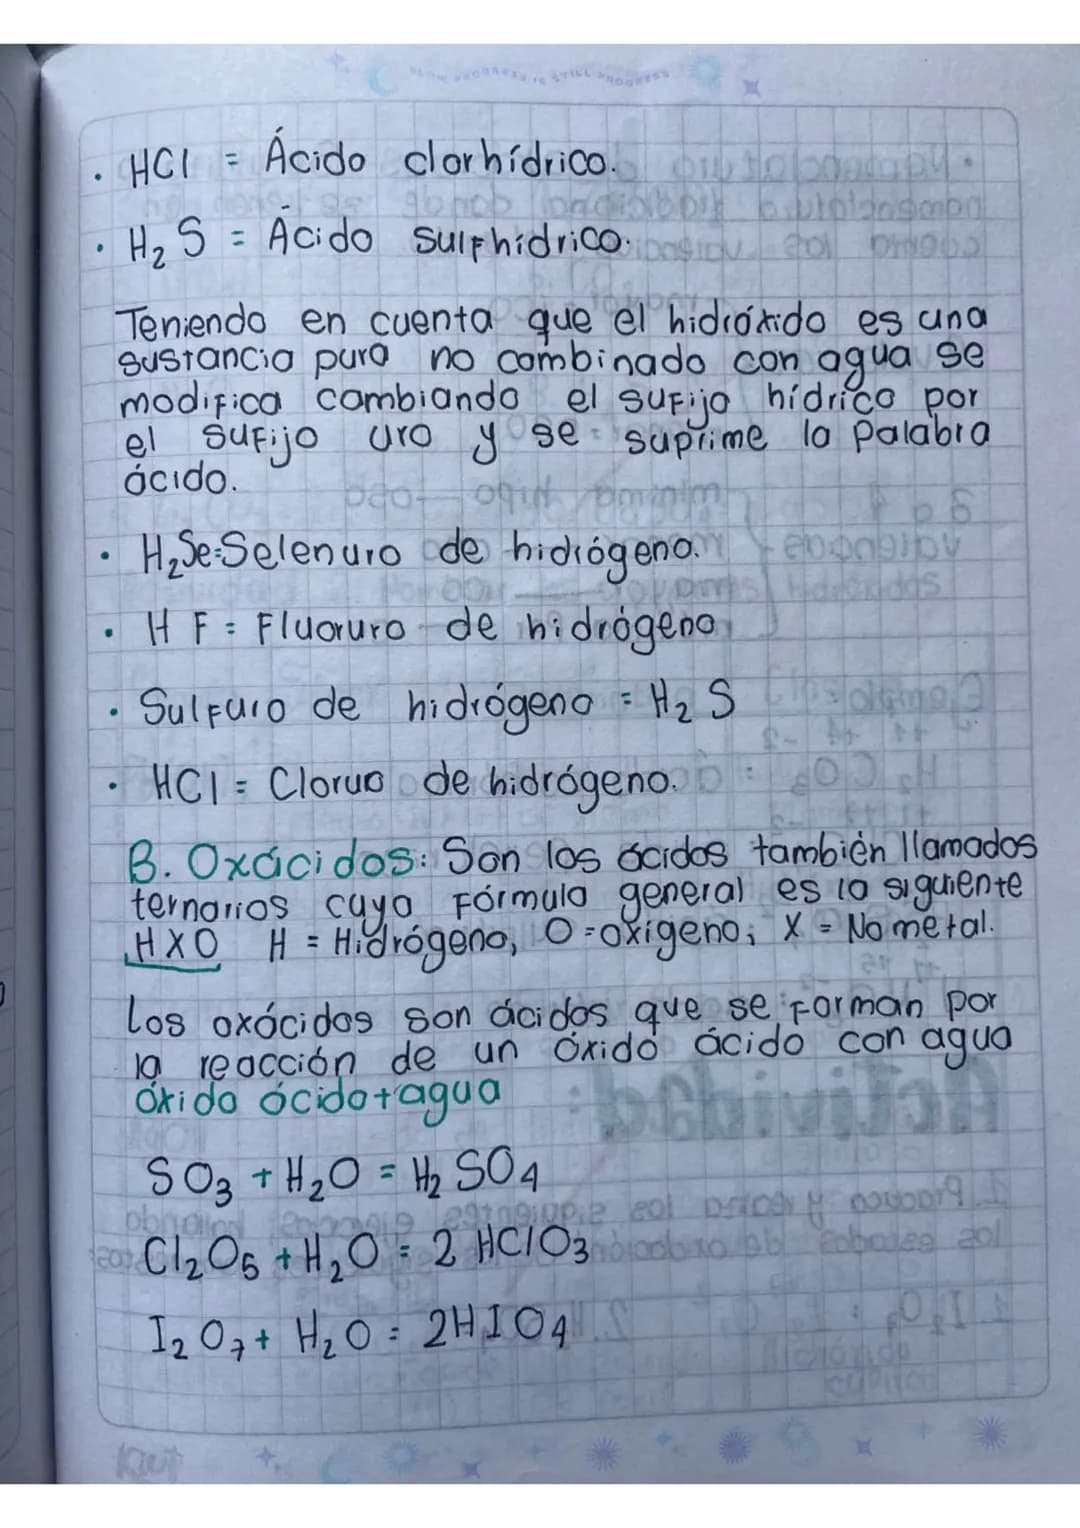 SLOW PROGRESS IS STILL PROGRESS
• HCl = Ácido clorhídrico.
• H₂S = Ácido sulfhídrico.
Teniendo en cuenta que el hidróxido es una
sustancia pura no combinado con agua se
modifica cambiando el sufijo hídrico por
el sufijo uro y se suprime la palabra
ácido.
• H₂Se=Selenuro de hidrógeno.
• HF = Fluoruro de hidrógeno
• Sulfuro de hidrógeno = H₂S
• HCl = Cloruo de hidrógeno.
B. Oxácidos: Son los ácidos también llamados
ternarios cuya fórmula general es la siguiente
HXO H = Hidrógeno, O=oxígeno; X = No metal.
Los oxácidos son ácidos que se forman por
la reacción de un óxido ácido con agua
óxido ácido+agua
SO₃ + H₂O = H₂SO₄
Cl₂O₅ + H₂O = 2 HClO₃
I₂O₇ + H₂O = 2HIO₄